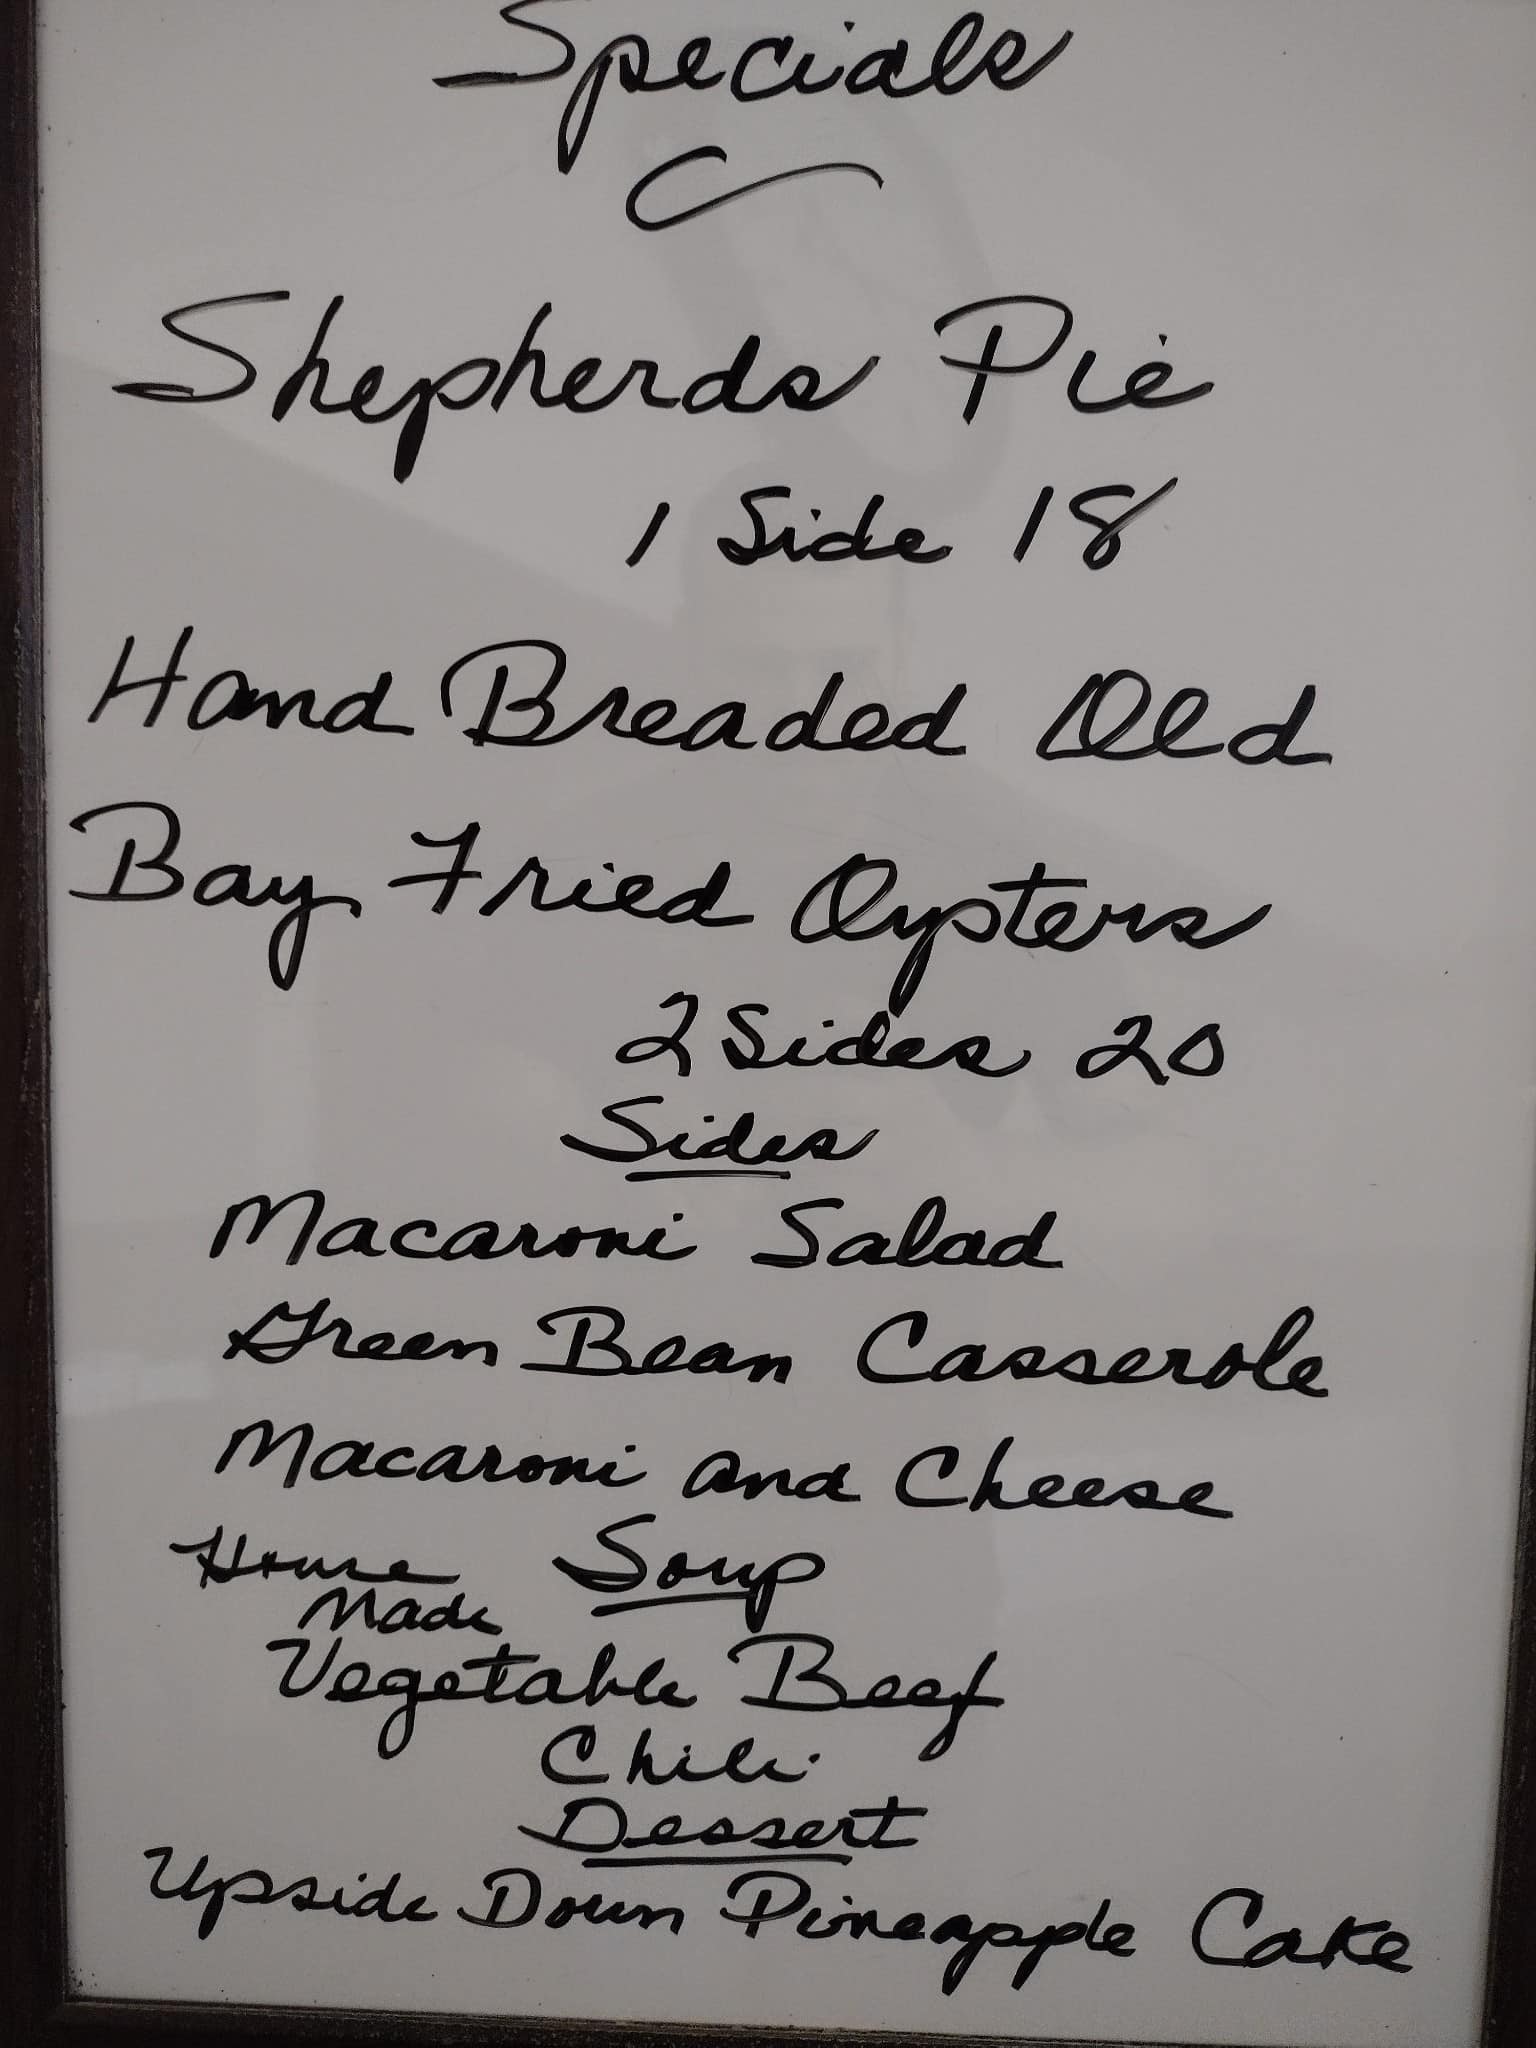 Specials
Shepherds Pie
1 Side 18
Hand Breaded Old
Bay Fried Oysters
2 Sides 20
Sides
Macaroni Salad
Green Bean Casserole
Macaroni and Cheese
House Soup
Made
Vegetable Beef
Chili
Dessert
Upside Down Pineapple Cake